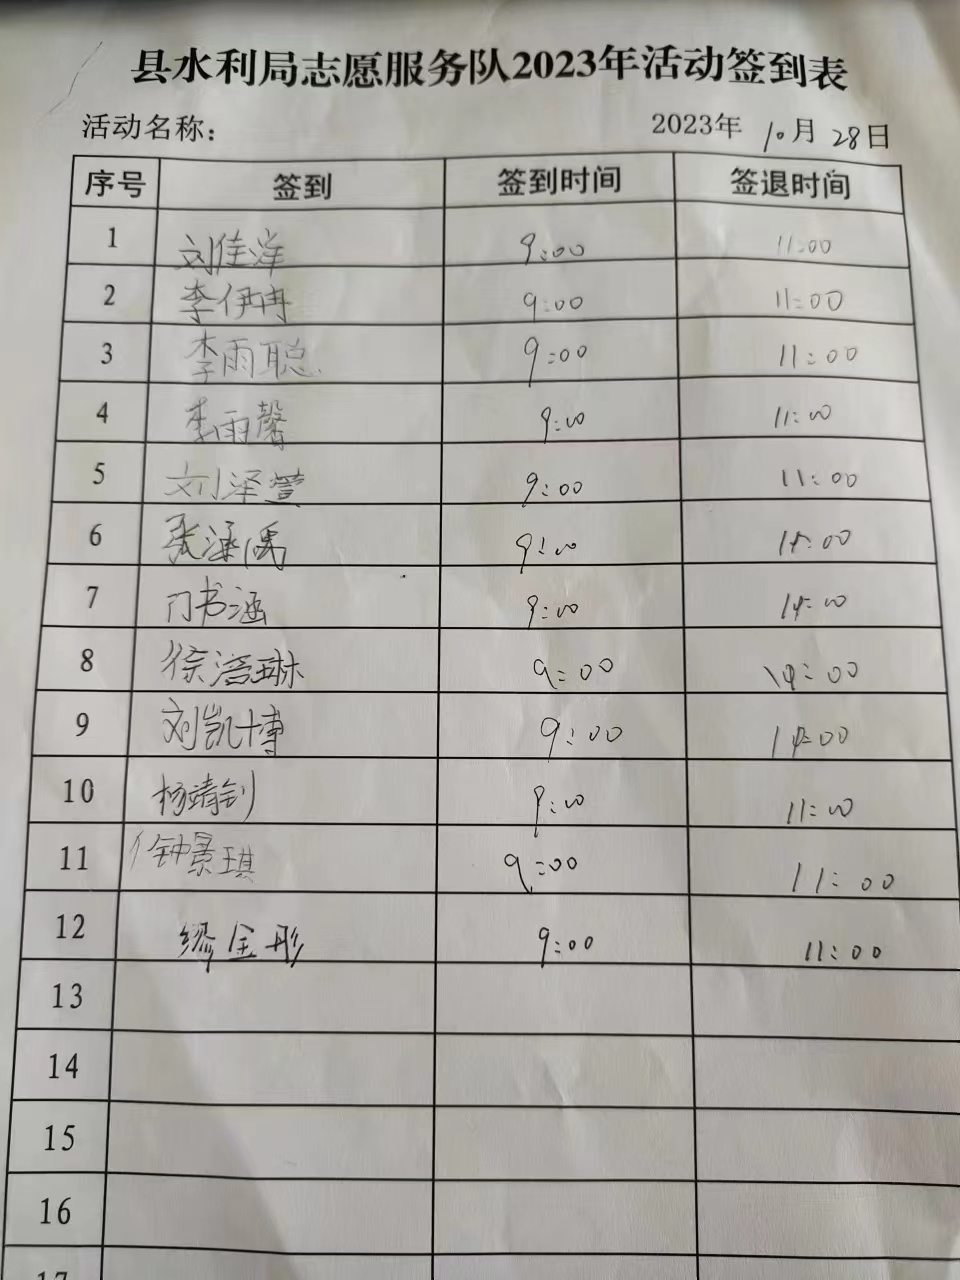 县水利局志愿服务队2023年活动签到表
活动名称： 2023年 10月 28日
序号 签到 签到时间 签退时间
1 刘佳洋 9:00 11:00
2 李伊冉 9:00 11:00
3 李雨聪 9:00 11:00
4 李雨馨 9:00 11:00
5 刘泽萱 9:00 11:00
6 张涵禹 9:00 :00
7 门书涵 9:00 14:00
8 徐 琳 9:00 14:00
9 刘凯博 9:00 14:00
10 杨靖钊 9:00 11:00
11 钟景琪 9:00 11:00
12 缪金彤 9:00 11:00
13
14
15
16
17